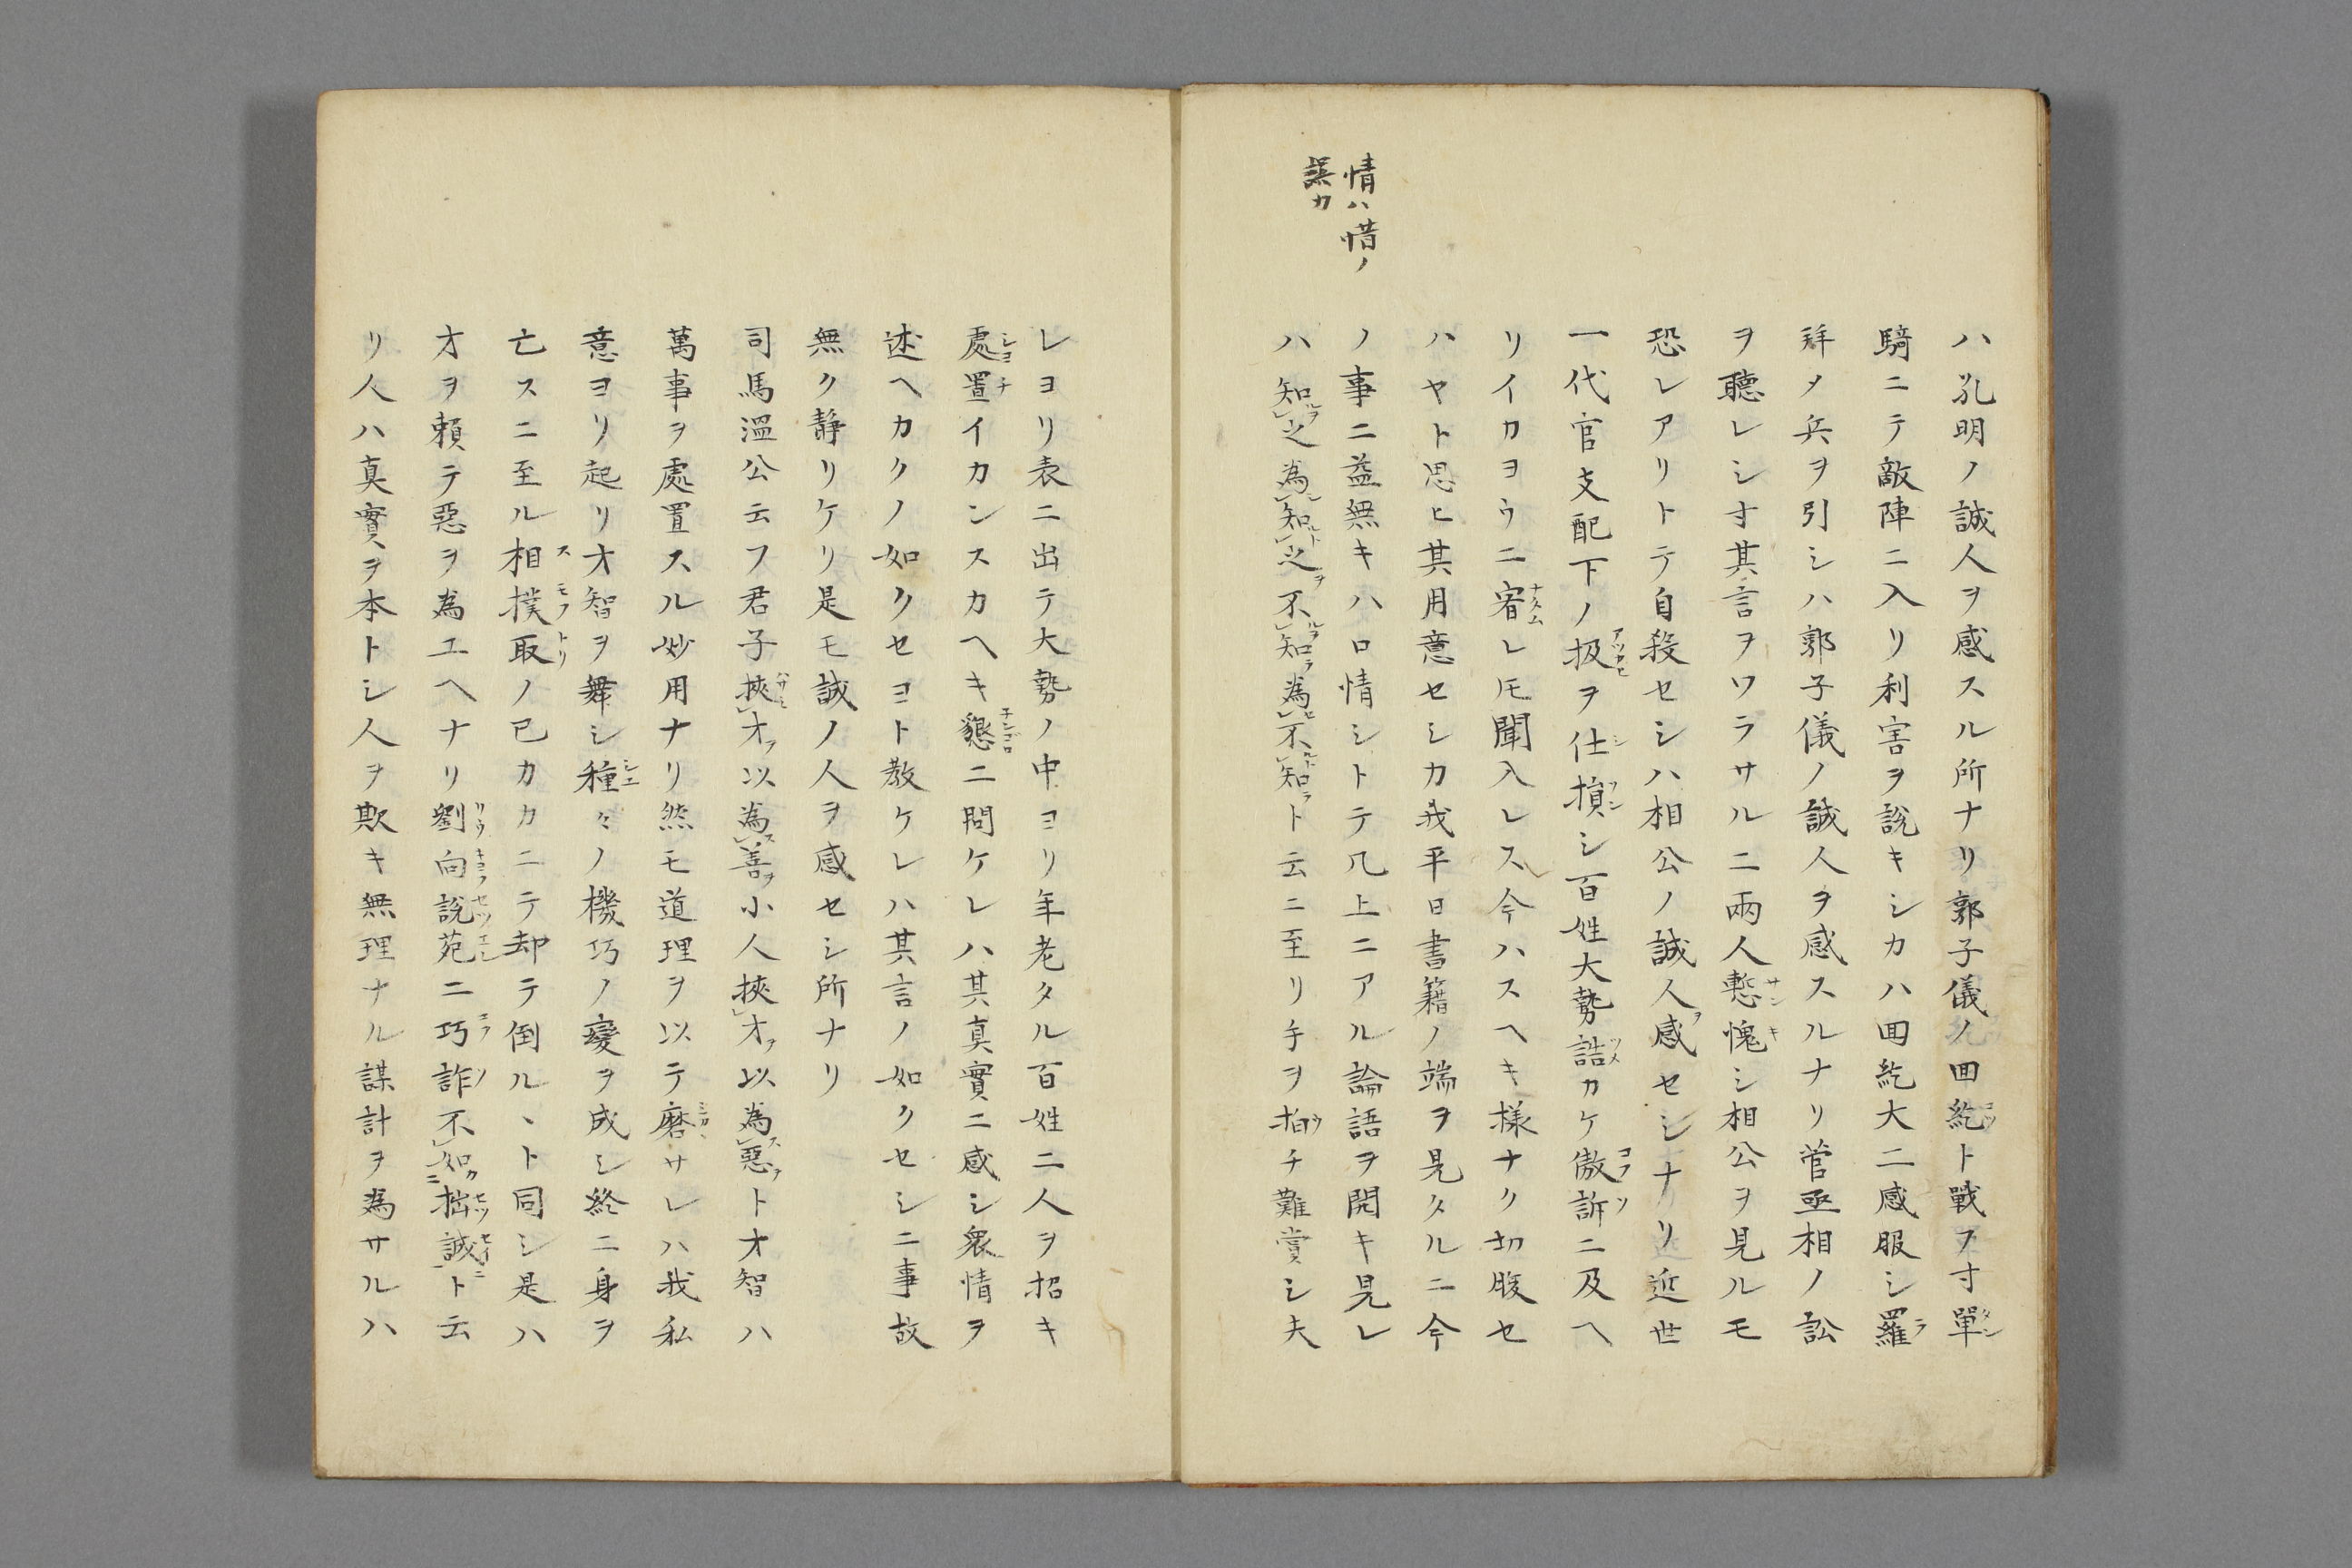 情ハ惜ノ
誤カ
ハ孔明ノ誠人ヲ感スル所ナリ郭子儀ノ囬紇ト戰フ寸單
騎ニテ敵陣ニ入リ利害ヲ説キシカハ囬紇大ニ感服シ羅
拜メ兵ヲ引シハ郭子儀ノ誠人ヲ感スルナリ菅亟相ノ訟
ヲ聽レシ寸其言ヲワラサルニ兩人慙愧シ相公ヲ見ルモ
恐レアリトテ自殺セシハ相公ノ誠人ヲ感セシナリ近世
一代官支配下ノ扱ヲ仕損シ百姓大勢誥カケ傲訴ニ及ヘ
リイカヨウニ宥レ𪜈聞入レス今ハスヘキ様ナク切腹セ
ハヤト思ヒ其用意セシカ我平日書籍ノ端ヲ見タルニ今
ノ事ニ益無キハ口情シトテ几上ニアル論語ヲ開キ見レ
ハ知之為知之不知為不知ト云ニ至リ手ヲ拍チ難賞シ夫
レヨリ表ニ出テ大勢ノ中ヨリ年老タル百姓二人ヲ招キ
處置イカンスカヘキ懇ニ問ケレハ其真實ニ感シ衆情ヲ
述ヘカクノ如クセヨト教ケレハ其言ノ如クセシニ事故
無ク静リケリ是モ誠ノ人ヲ感セシ所ナリ
司馬温公云フ君子挾才以為善小人挾才以為惡ト才智ハ
萬事ヲ處置スル妙用ナリ然モ道理ヲ以テ磨サレハ我私
意ヨリ起リ才智ヲ舞シ種々ノ機巧ノ變ヲ成シ終ニ身ヲ
亡スニ至ル相撲取ノ己カカニテ却テ倒ルヽト同シ是ハ
才ヲ頼テ惡ヲ為エヘナリ劉向説苑ニ巧詐不如拙誠ト云
リ人ハ真實ヲ本トシ人ヲ欺キ無理ナル謀計ヲ為サルハ